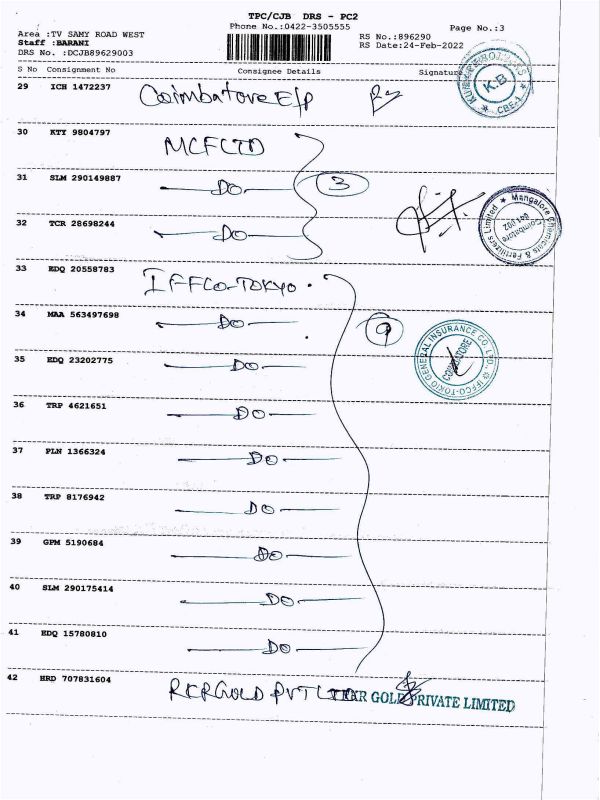 TPC/CJB DRS - PC2
Phone No.:0422-3505555
Page No.:3
Area :TV SAMY ROAD WEST
RS No.:896290
Staff :BARANI
RS Date:24-Feb-2022
DRS No. :DCJB89629003
S No Consignment No Consignee Details Signature
29 ICH 1472237 Coimbatore E/p
K.B
CBE-1
30 KTY 9804797 MCFLTD
31 SLM 290149887 DO 3
32 TCR 28698244 DO
Mangalore Chemicals & Fertilizers Limited
Coimbatore
641 002
33 EDQ 20558783 IFFCO-TOKYO.
34 MAA 563497698 DO 9
IFFCO-TOKIO GENERAL INSURANCE CO. LTD.
COIMBATORE
35 EDQ 23202775 DO
36 TRP 4621651 DO
37 PLN 1366324 DO
38 TRP 8176942 DO
39 GPM 5190684 DO
40 SLM 290175414 DO
41 EDQ 15780810 DO
42 HRD 707831604 RKRGOLD PVT LTD
RKR GOLD PRIVATE LIMITED